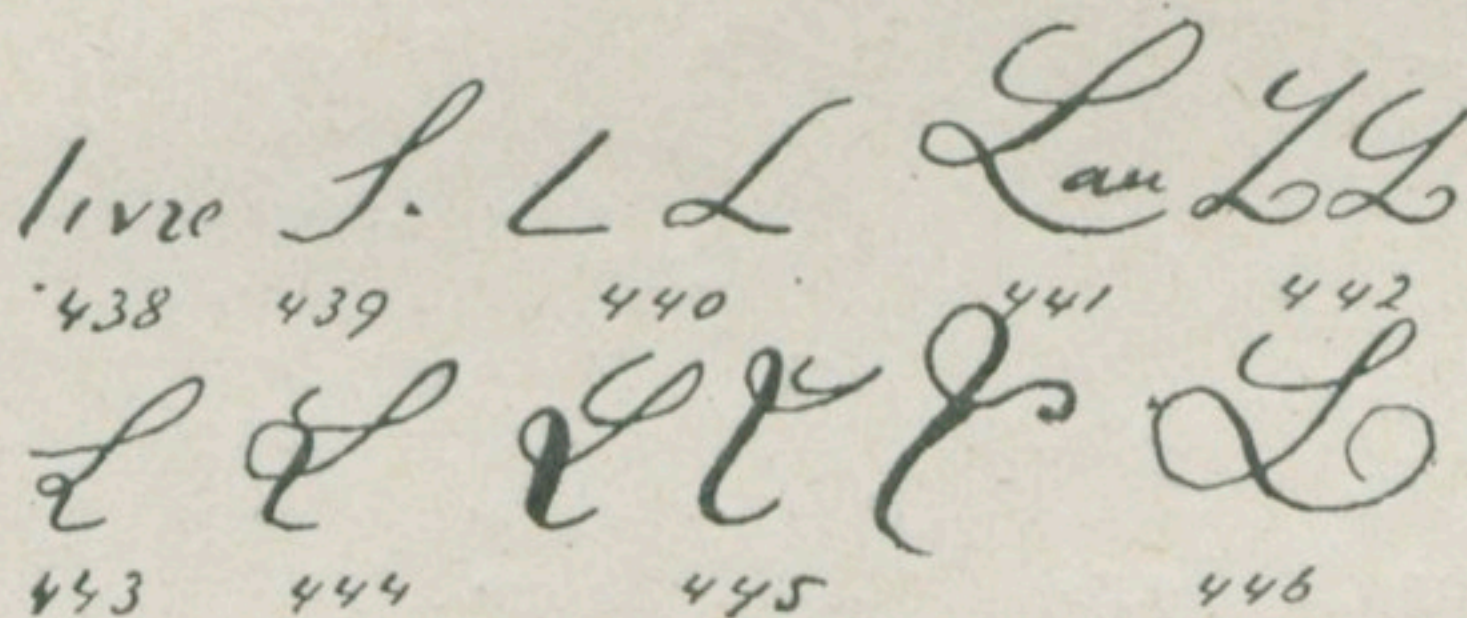 livre L. L L Lau L L
438 439 440 441 442
L L L L L L
443 444 445 446